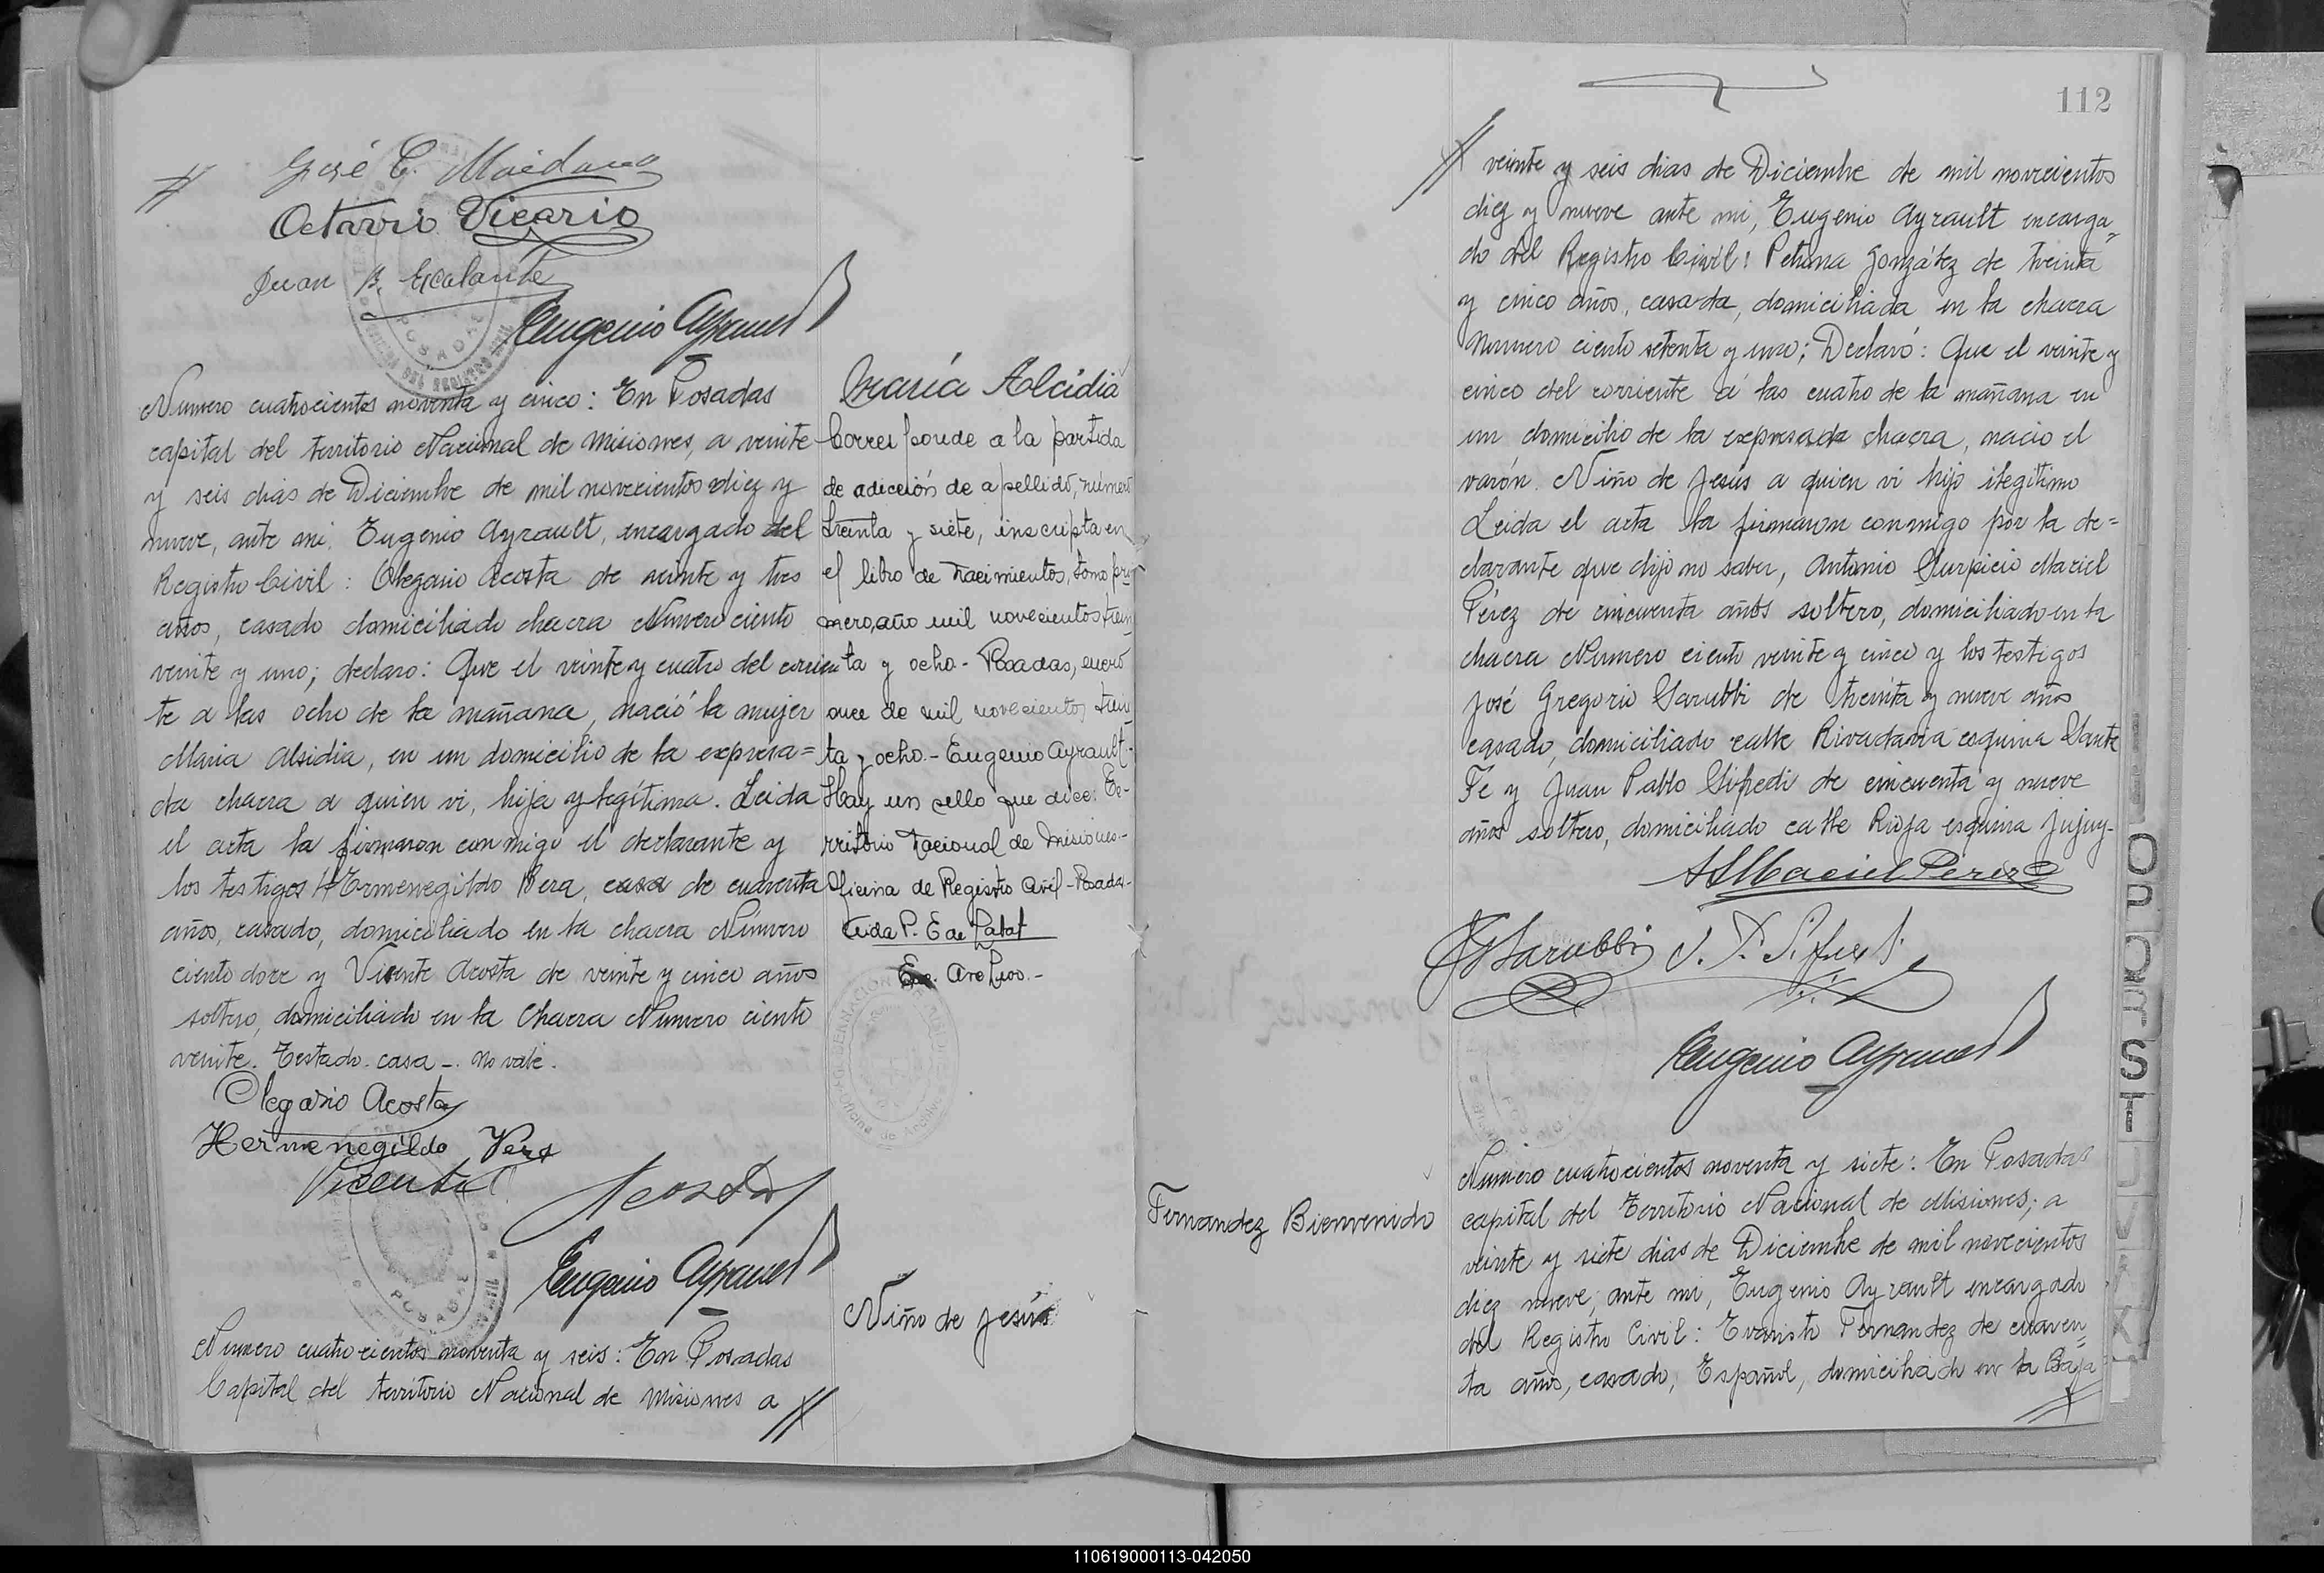 José C. Maidana
Octavio Vicario
Juan B. Escalante
Eugenio Ayrault
Numero cuatrocientos noventa y cinco: En Posadas
capital del territorio Nacional de Misiones, a veinte
y seis dias de Diciembre de mil novecientos diez y
nueve, ante mi, Eugenio Ayrault, encargado del
Registro Civil: Olegario Acosta de veinte y tres
años, casado domiciliado chacra Numero ciento
veinte y uno; declaro: Que el veinte y cuatro del corrien
te a las ocho de la mañana, nació la mujer
Maria Alsidia, en un domicilio de la expresa=
da chacra a quien vi, hija legítima. Leida
el acta la firmaron conmigo el declarante y
los testigos Hermenegildo Vera, casa de cuarenta
años, casado, domiciliado en la chacra Número
ciento doce y Vicente Acosta de veinte y cinco años
soltero, domiciliado en la Chacra Numero ciento
veinte. Testado-casa-. no vale.
Olegario Acosta
Hermenegildo Vera
Vicente Acosta
Eugenio Ayrault
Numero cuatrocientos noventa y seis: En Posadas
Capital del territorio Nacional de Misiones a
María Alcidia
Corresponde a la partida
de adicción de apellido, número
treinta y siete, inscripta en
el libro de nacimientos, tomo pri
mero, año mil novecientos trein
ta y ocho.- Posadas, enero
once de mil novecientos trein
ta y ocho.- Eugenio Ayrault.-
Hay un sello que dice: Te-
rritorio Nacional de Misiones.-
Oficina de Registro Civil-Posadas-
P. E de
POSADAS
Niño de Jesús
112
veinte y seis dias de Diciembre de mil novecientos
diez y nueve ante mi, Eugenio Ayrault encarga=
do del Registro Civil: Petrona González de treinta
y cinco años, casada, domiciliada en la chacra
Numero ciento setenta y uno; Declaró: Que el veinte y
cinco del corriente á las cuatro de la mañana en
un domicilio de la expresada chacra, nacio el
varón Niño de Jesús a quien vi hijo ilegítimo
Leida el acta la firmaron conmigo por la de=
clarante que dijo no saber, Antonio Surpicio Maciel
Pérez de cincuenta años soltero, domiciliado en la
chacra Numero ciento veinte y cinco y los testigos
José Gregorio Sarubbi de treinta y nueve años
casado, domiciliado calle Rivadavia esquina Santa
Fe y Juan Pablo Sifredi de cincuenta y nueve
años soltero, domiciliado calle Rioja esquina Jujuy-
A S Maciel Pérez
J G Sarubbi J. P. Sifredi
Eugenio Ayrault
Fernandez Bienvenido
Numero cuatrocientos noventa y siete: En Posadas
capital del Territorio Nacional de Misiones; a
veinte y siete dias de Diciembre de mil novecientos
diez nueve, ante mi, Eugenio Ayrault encargado
del Registro Civil: Evaristo Fernandez de cuaren=
ta años, casado, Español, domiciliado en la Baja
O
P
Q
R
S
T
U
V
X
110619000113-042050